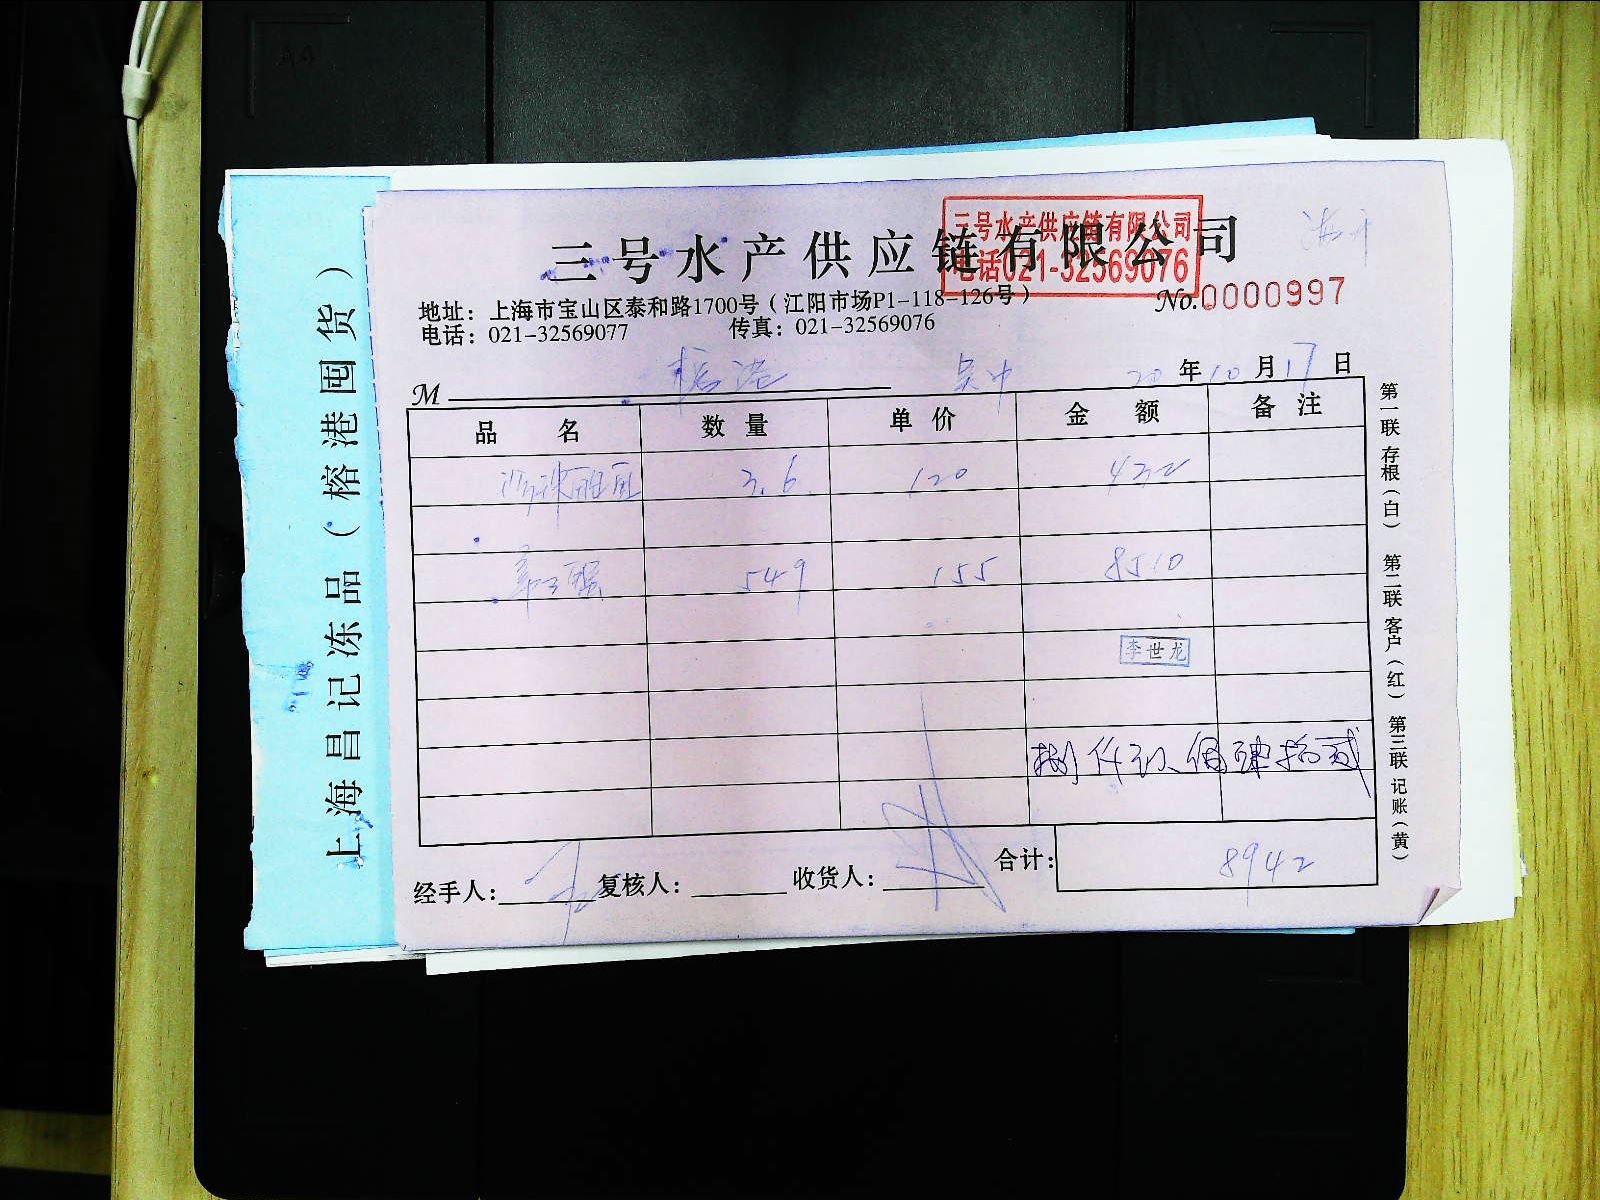 三号水产供应链有限公司
三号水产供应链有限公司
电话021-32569076
地址：上海市宝山区泰和路1700号（江阳市场P1-118-126号）
No.0000997
电话：021-32569077 传真：021-32569076
M 榕港 吴中 20年10月17日
品名 数量 单价 金额 备注
3.6 120 432
549 155 8510
李世龙
捌仟玖佰肆拾贰
合计：8942
经手人： 复核人： 收货人：
第一联 存根（白） 第二联 客户（红） 第三联 记账（黄）
上海昌记冻品（榕港囤货）